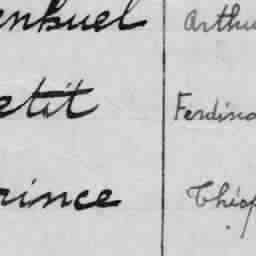 enkuel Arthu
etit Ferdina
rince Théop